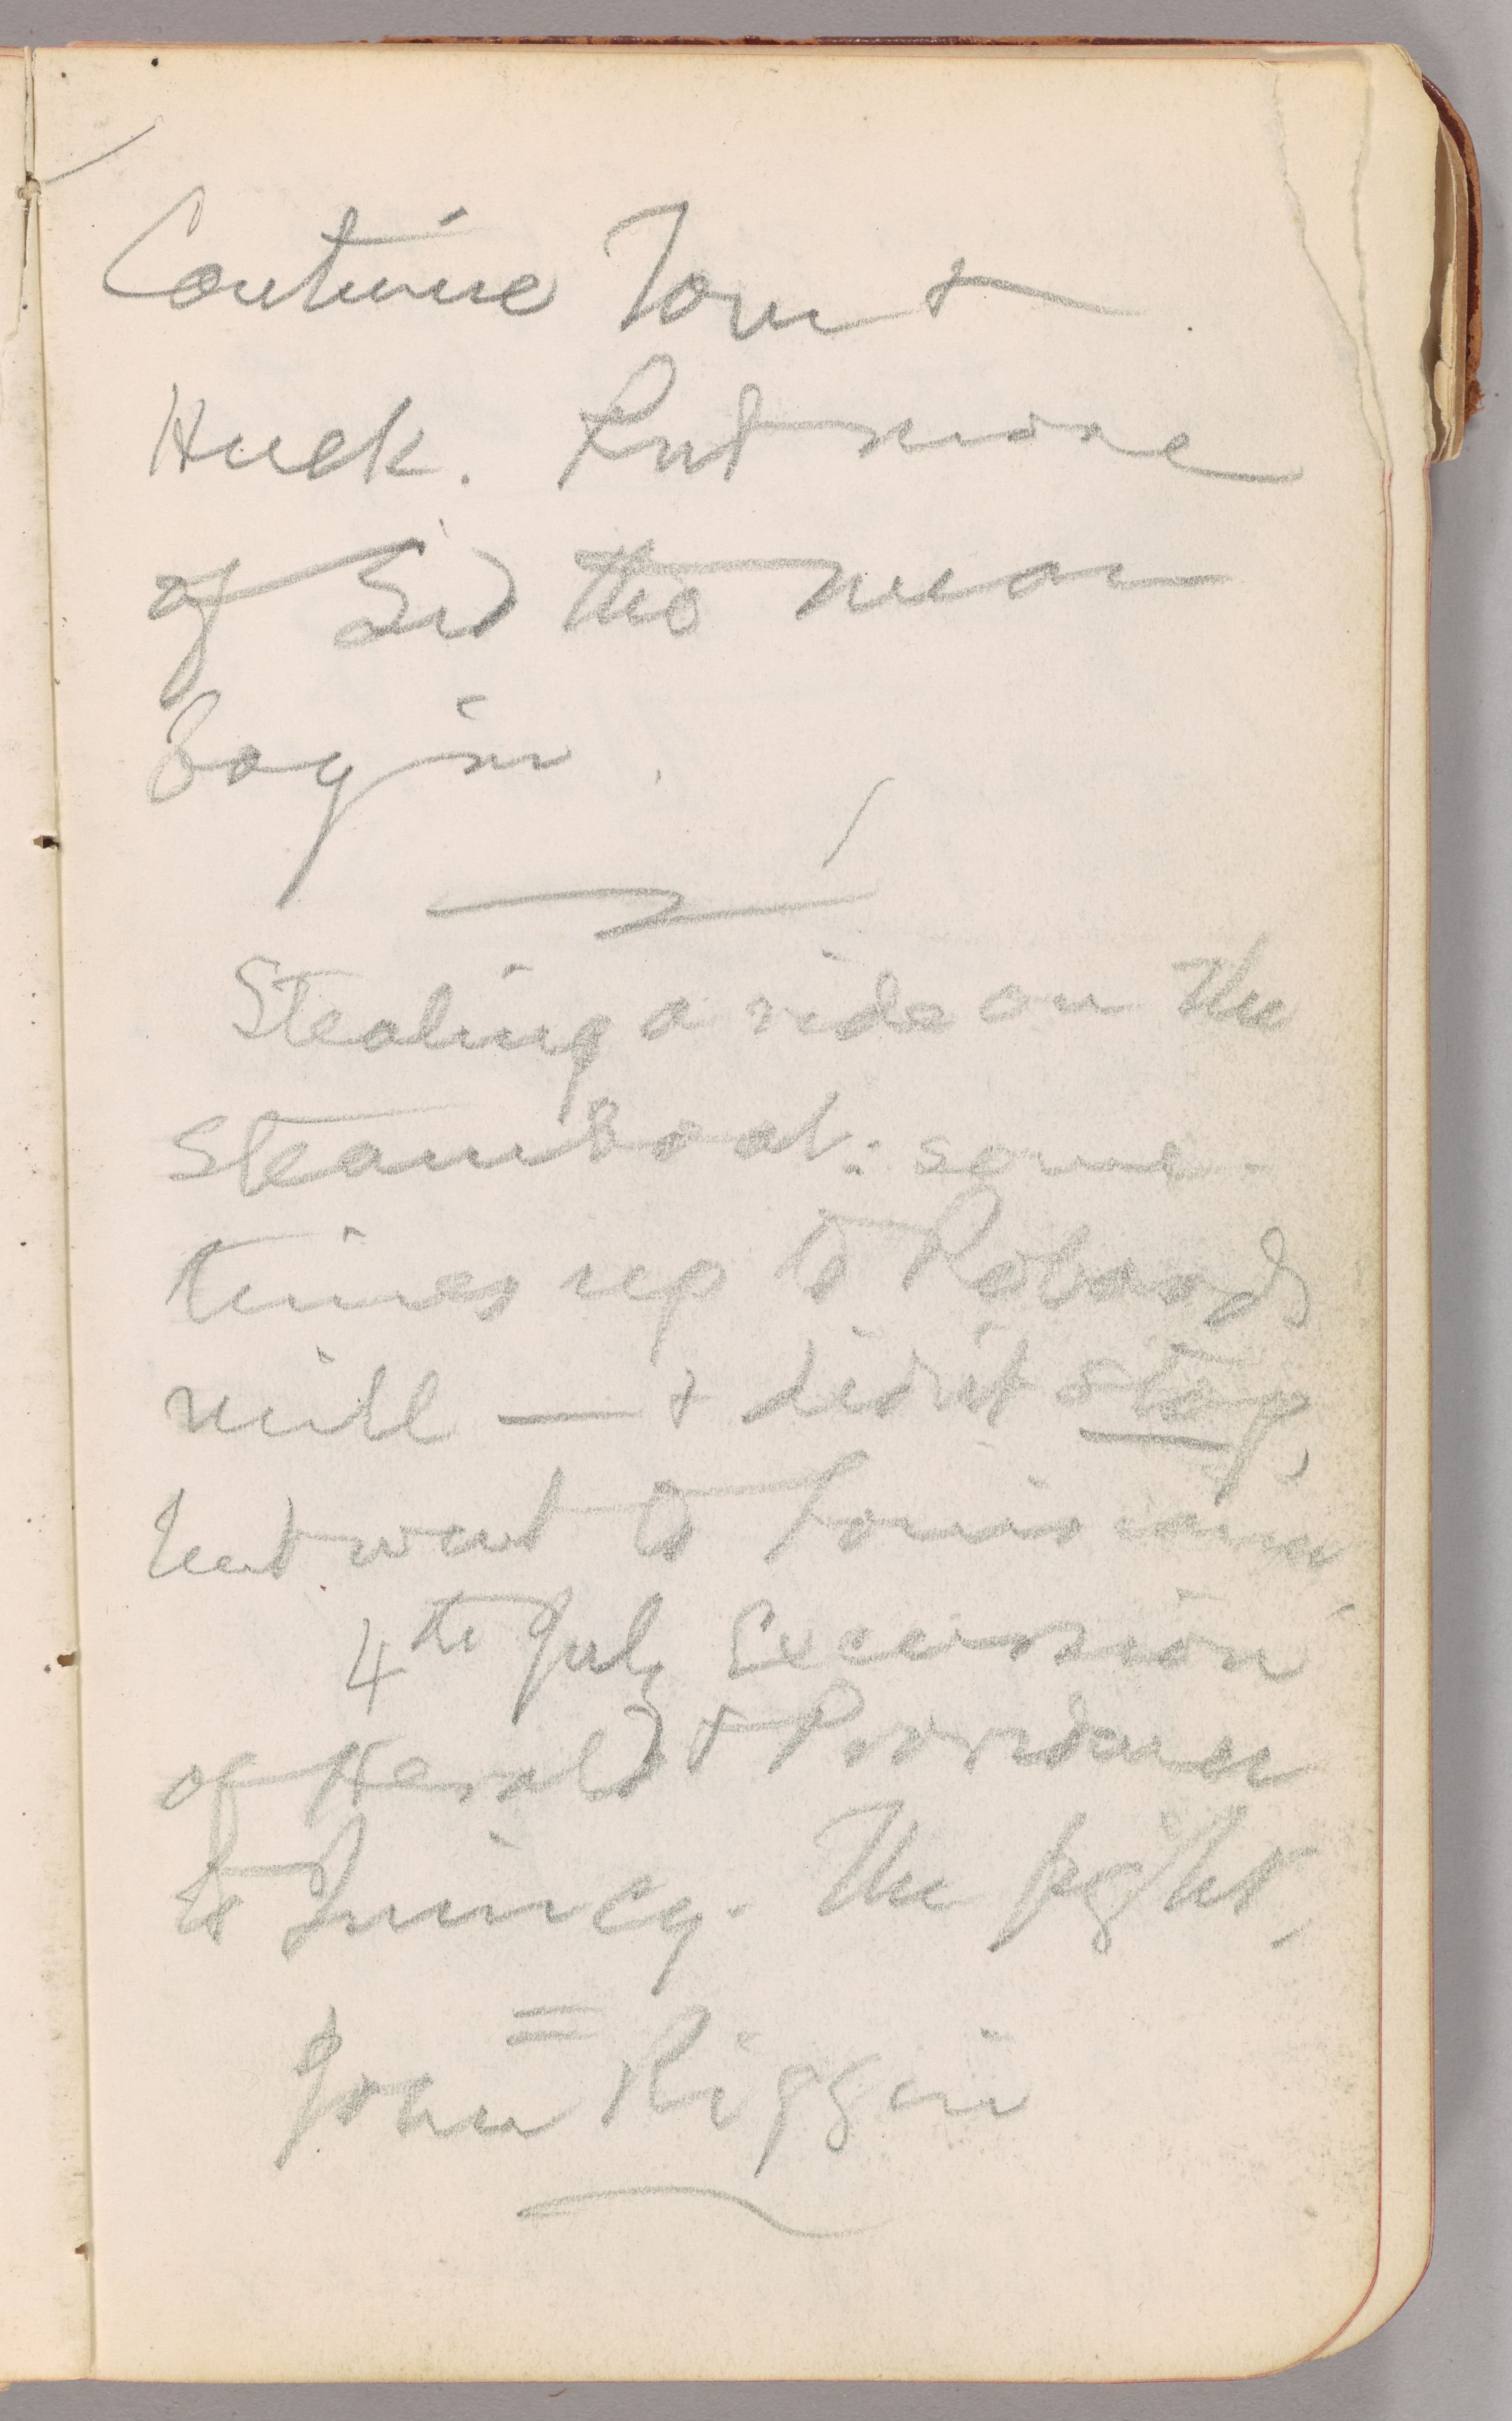 Continue Tom &
Huck. Put more
of Sid the mean
boy in.
Stealing a ride on the
steamboat: some-
times up to Robards
mill — & didn't stop,
but went to Louisiana.
4th July Excursion
of Herald & Providence
to Quincy. The fight.
John Riggin